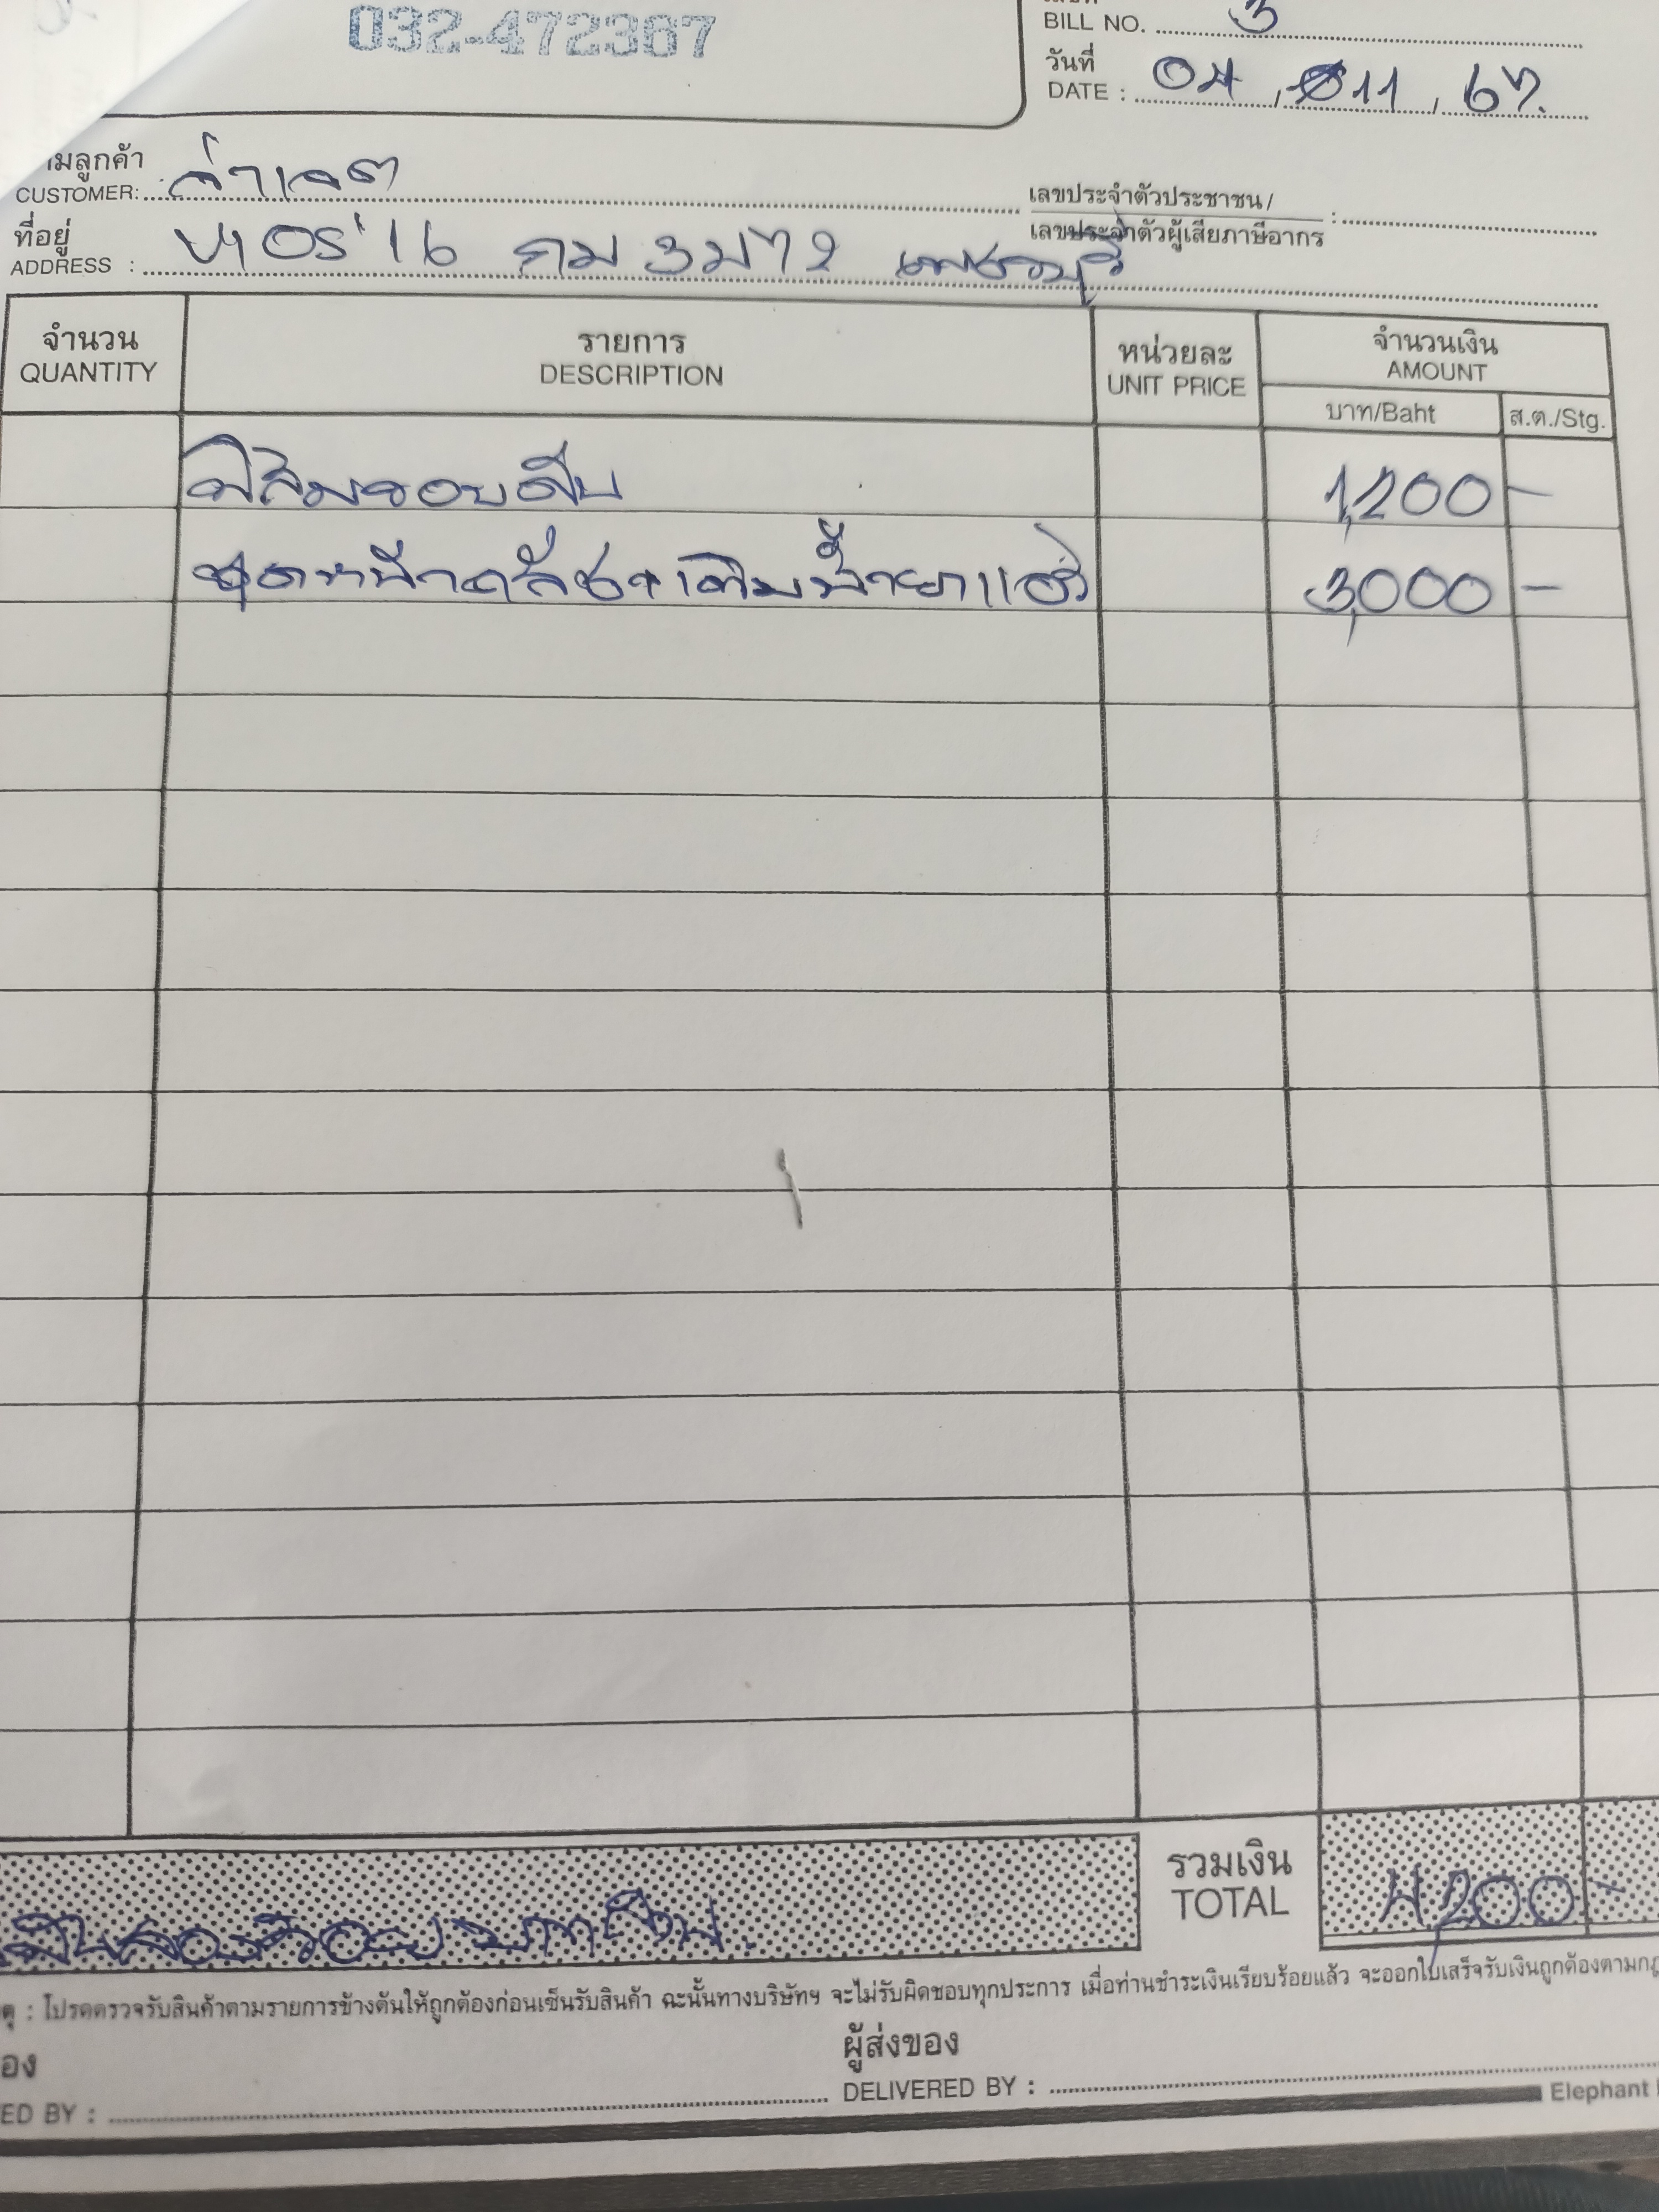 032-472367
BILL NO. 3
วันที่
DATE : 04 / 11 / 67
ามลูกค้า
CUSTOMER: จ่าเจต
เลขประจำตัวประชาชน /
เลขประจำตัวผู้เสียภาษีอากร :
ที่อยู่
ADDRESS : เพชรบุรี
จำนวน รายการ หน่วยละ จำนวนเงิน
QUANTITY DESCRIPTION UNIT PRICE AMOUNT
บาท/Baht ส.ต./Stg.
ฟิล์มรอบคัน 1,200 -
ชุดหน้าคลัช+เติมน้ำยาแอร์ 3,000 -
รวมเงิน
TOTAL 4,200 -
สี่พันสองร้อยบาทถ้วน.
ตุ : โปรดตรวจรับสินค้าตามรายการข้างต้นให้ถูกต้องก่อนเซ็นรับสินค้า ฉะนั้นทางบริษัทฯ จะไม่รับผิดชอบทุกประการ เมื่อท่านชำระเงินเรียบร้อยแล้ว จะออกใบเสร็จรับเงินถูกต้องตามกฎ
อง ผู้ส่งของ
ED BY : DELIVERED BY :
Elephant